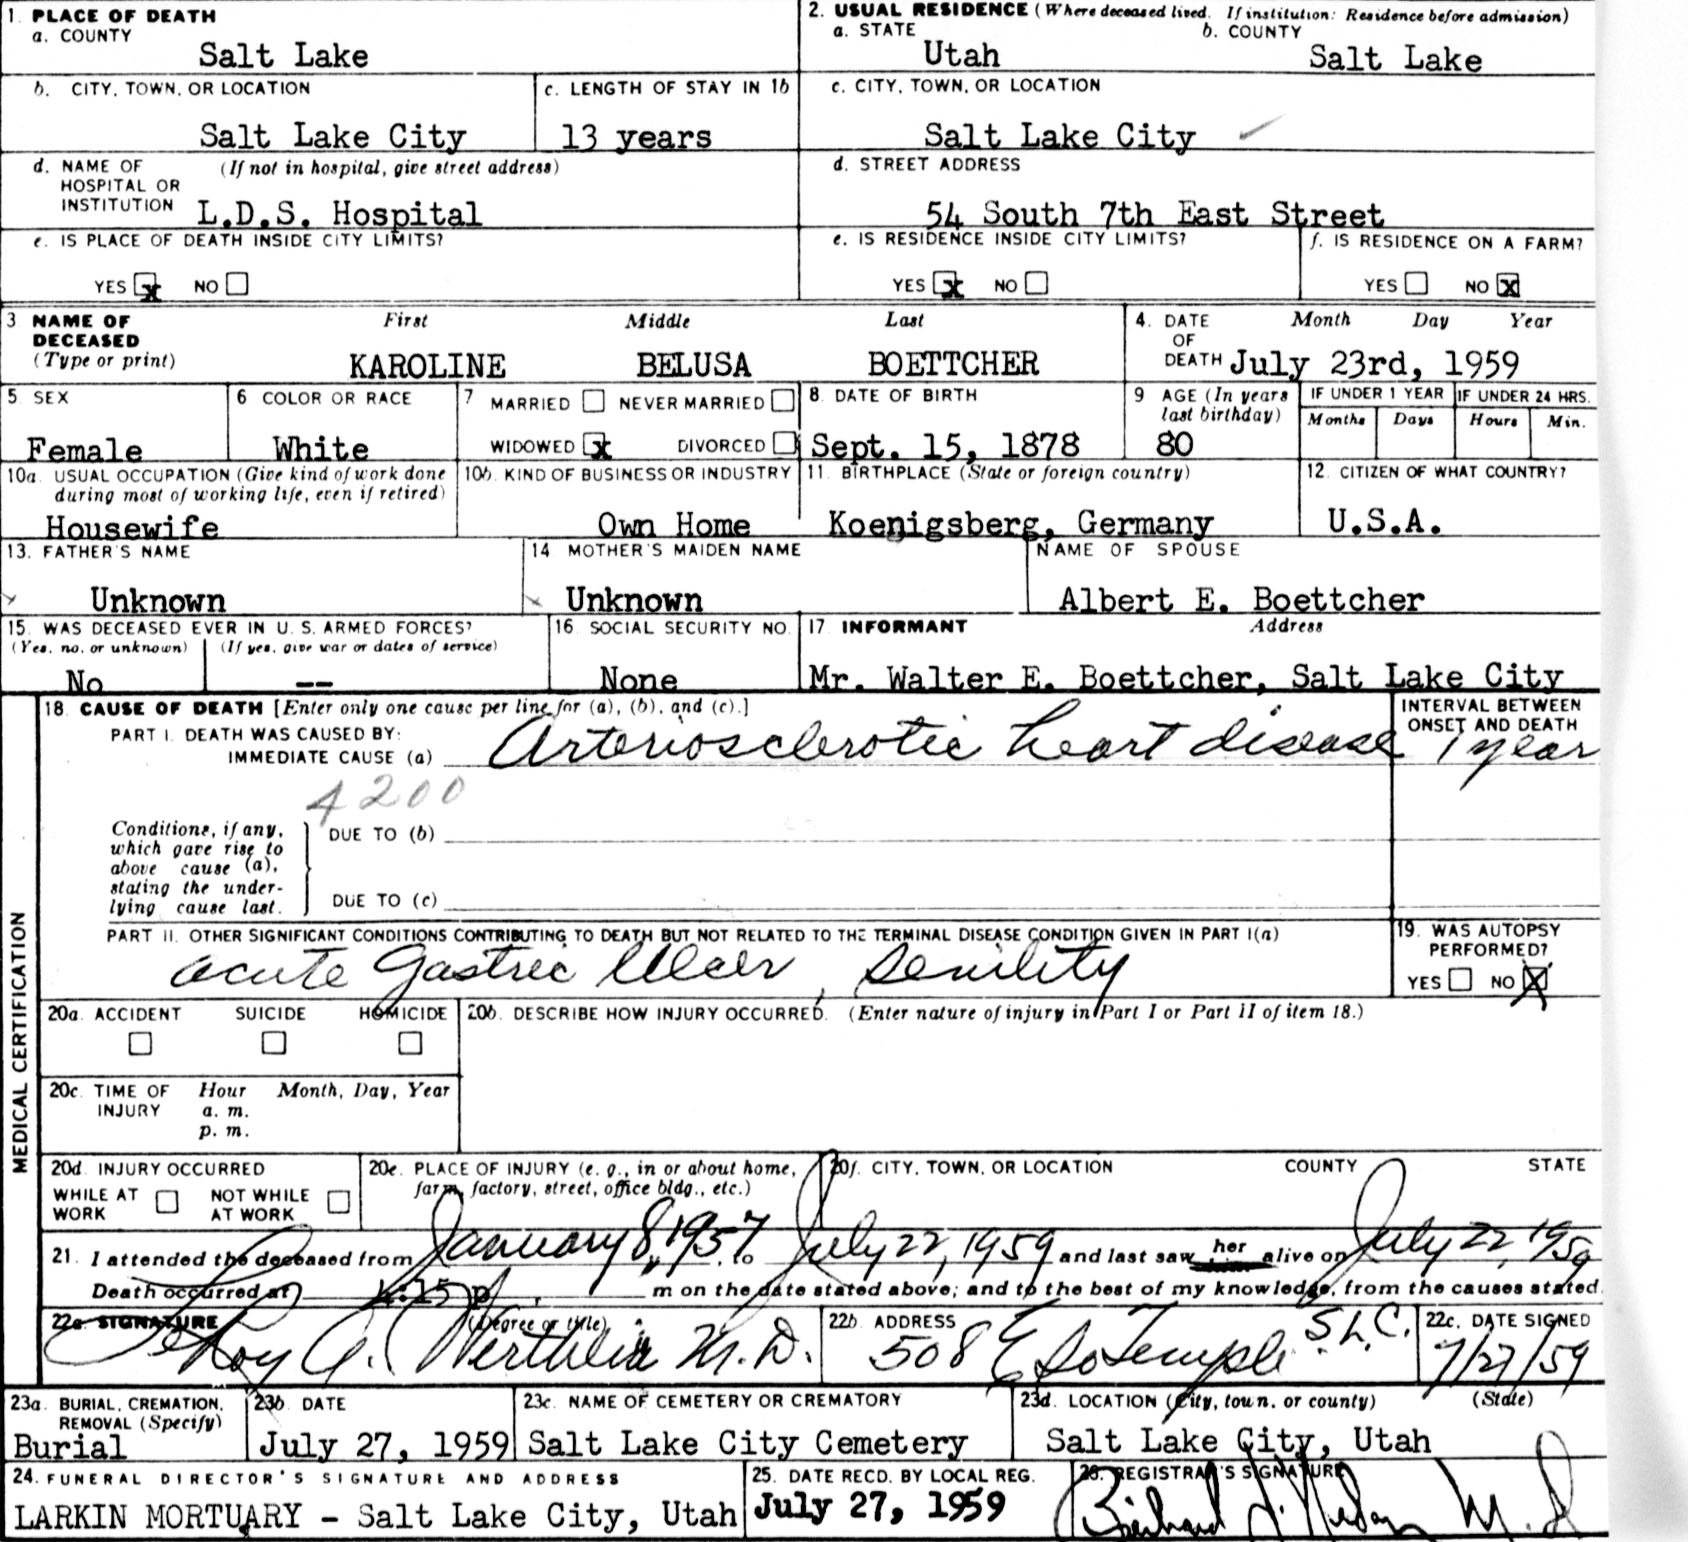 1. PLACE OF DEATH
a. COUNTY
Salt Lake
2. USUAL RESIDENCE (Where deceased lived. If institution: Residence before admission)
a. STATE
Utah
b. COUNTY
Salt Lake
b. CITY, TOWN, OR LOCATION
Salt Lake City
c. LENGTH OF STAY IN 1b
13 years
c. CITY, TOWN, OR LOCATION
Salt Lake City
d. NAME OF HOSPITAL OR INSTITUTION (If not in hospital, give street address)
L.D.S. Hospital
d. STREET ADDRESS
54 South 7th East Street
e. IS PLACE OF DEATH INSIDE CITY LIMITS?
YES x NO
e. IS RESIDENCE INSIDE CITY LIMITS?
YES x NO
f. IS RESIDENCE ON A FARM?
YES NO x
3 NAME OF DECEASED (Type or print)
First Middle Last
KAROLINE BELUSA BOETTCHER
4. DATE OF DEATH Month Day Year
July 23rd, 1959
5 SEX
Female
6 COLOR OR RACE
White
7 MARRIED NEVER MARRIED
WIDOWED x DIVORCED
8. DATE OF BIRTH
Sept. 15, 1878
9 AGE (In years last birthday)
80
IF UNDER 1 YEAR
Months Days
IF UNDER 24 HRS.
Hours Min.
10a. USUAL OCCUPATION (Give kind of work done during most of working life, even if retired)
Housewife
10b. KIND OF BUSINESS OR INDUSTRY
Own Home
11. BIRTHPLACE (State or foreign country)
Koenigsberg, Germany
12. CITIZEN OF WHAT COUNTRY?
U.S.A.
13. FATHER'S NAME
Unknown
14 MOTHER'S MAIDEN NAME
Unknown
NAME OF SPOUSE
Albert E. Boettcher
15. WAS DECEASED EVER IN U. S. ARMED FORCES?
(Yes, no, or unknown) (If yes, give war or dates of service)
No --
16. SOCIAL SECURITY NO.
None
17 INFORMANT Address
Mr. Walter E. Boettcher, Salt Lake City
MEDICAL CERTIFICATION
18. CAUSE OF DEATH [Enter only one cause per line for (a), (b), and (c).]
PART I. DEATH WAS CAUSED BY:
IMMEDIATE CAUSE (a) Arteriosclerotic heart disease
INTERVAL BETWEEN ONSET AND DEATH
1 year
4200
Conditions, if any, which gave rise to above cause (a), stating the underlying cause last.
DUE TO (b)
DUE TO (c)
PART II. OTHER SIGNIFICANT CONDITIONS CONTRIBUTING TO DEATH BUT NOT RELATED TO THE TERMINAL DISEASE CONDITION GIVEN IN PART I(a)
acute Gastric Ulcer, Senility
19. WAS AUTOPSY PERFORMED?
YES NO X
20a. ACCIDENT SUICIDE HOMICIDE
20b. DESCRIBE HOW INJURY OCCURRED. (Enter nature of injury in Part I or Part II of item 18.)
20c. TIME OF INJURY Hour Month, Day, Year
a. m.
p. m.
20d. INJURY OCCURRED
WHILE AT WORK NOT WHILE AT WORK
20e. PLACE OF INJURY (e. g., in or about home, farm, factory, street, office bldg., etc.)
20f. CITY, TOWN, OR LOCATION COUNTY STATE
21. I attended the deceased from January 8, 1957, to July 22, 1959 and last saw her alive on July 22, 1959
Death occurred at 4:15 p. m on the date stated above; and to the best of my knowledge, from the causes stated.
22a. SIGNATURE (Degree or title)
M.D.
22b. ADDRESS
508 E So Temple S.L.C.
22c. DATE SIGNED
7/27/59
23a. BURIAL, CREMATION, REMOVAL (Specify)
Burial
23b. DATE
July 27, 1959
23c. NAME OF CEMETERY OR CREMATORY
Salt Lake City Cemetery
23d. LOCATION (City, town, or county) (State)
Salt Lake City, Utah
24. FUNERAL DIRECTOR'S SIGNATURE AND ADDRESS
LARKIN MORTUARY - Salt Lake City, Utah
25. DATE RECD. BY LOCAL REG.
July 27, 1959
26. REGISTRAR'S SIGNATURE
M.D